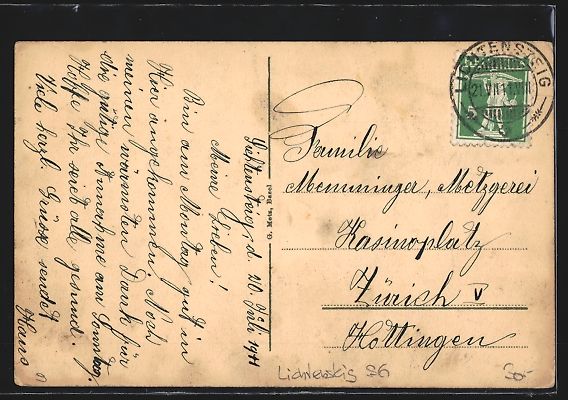 Lichtensteig, d. 20. Juli 1911
Meine Lieben!
Bin am Montag gut in
hier angekommen. Noch
meinen wärmsten Dank für
die gütige Annahme am Sonntag.
Hoffe Ihr seied alle gesund.
Viele herzl. Grüsse sendet
Hans
G. Metz, Basel
LICHTENSTEIG
21.VII.11
5
Familie
Memminger, Metzgerei
Kasinoplatz
Zürich V
Hottingen
Lichtensteig SG
30.-